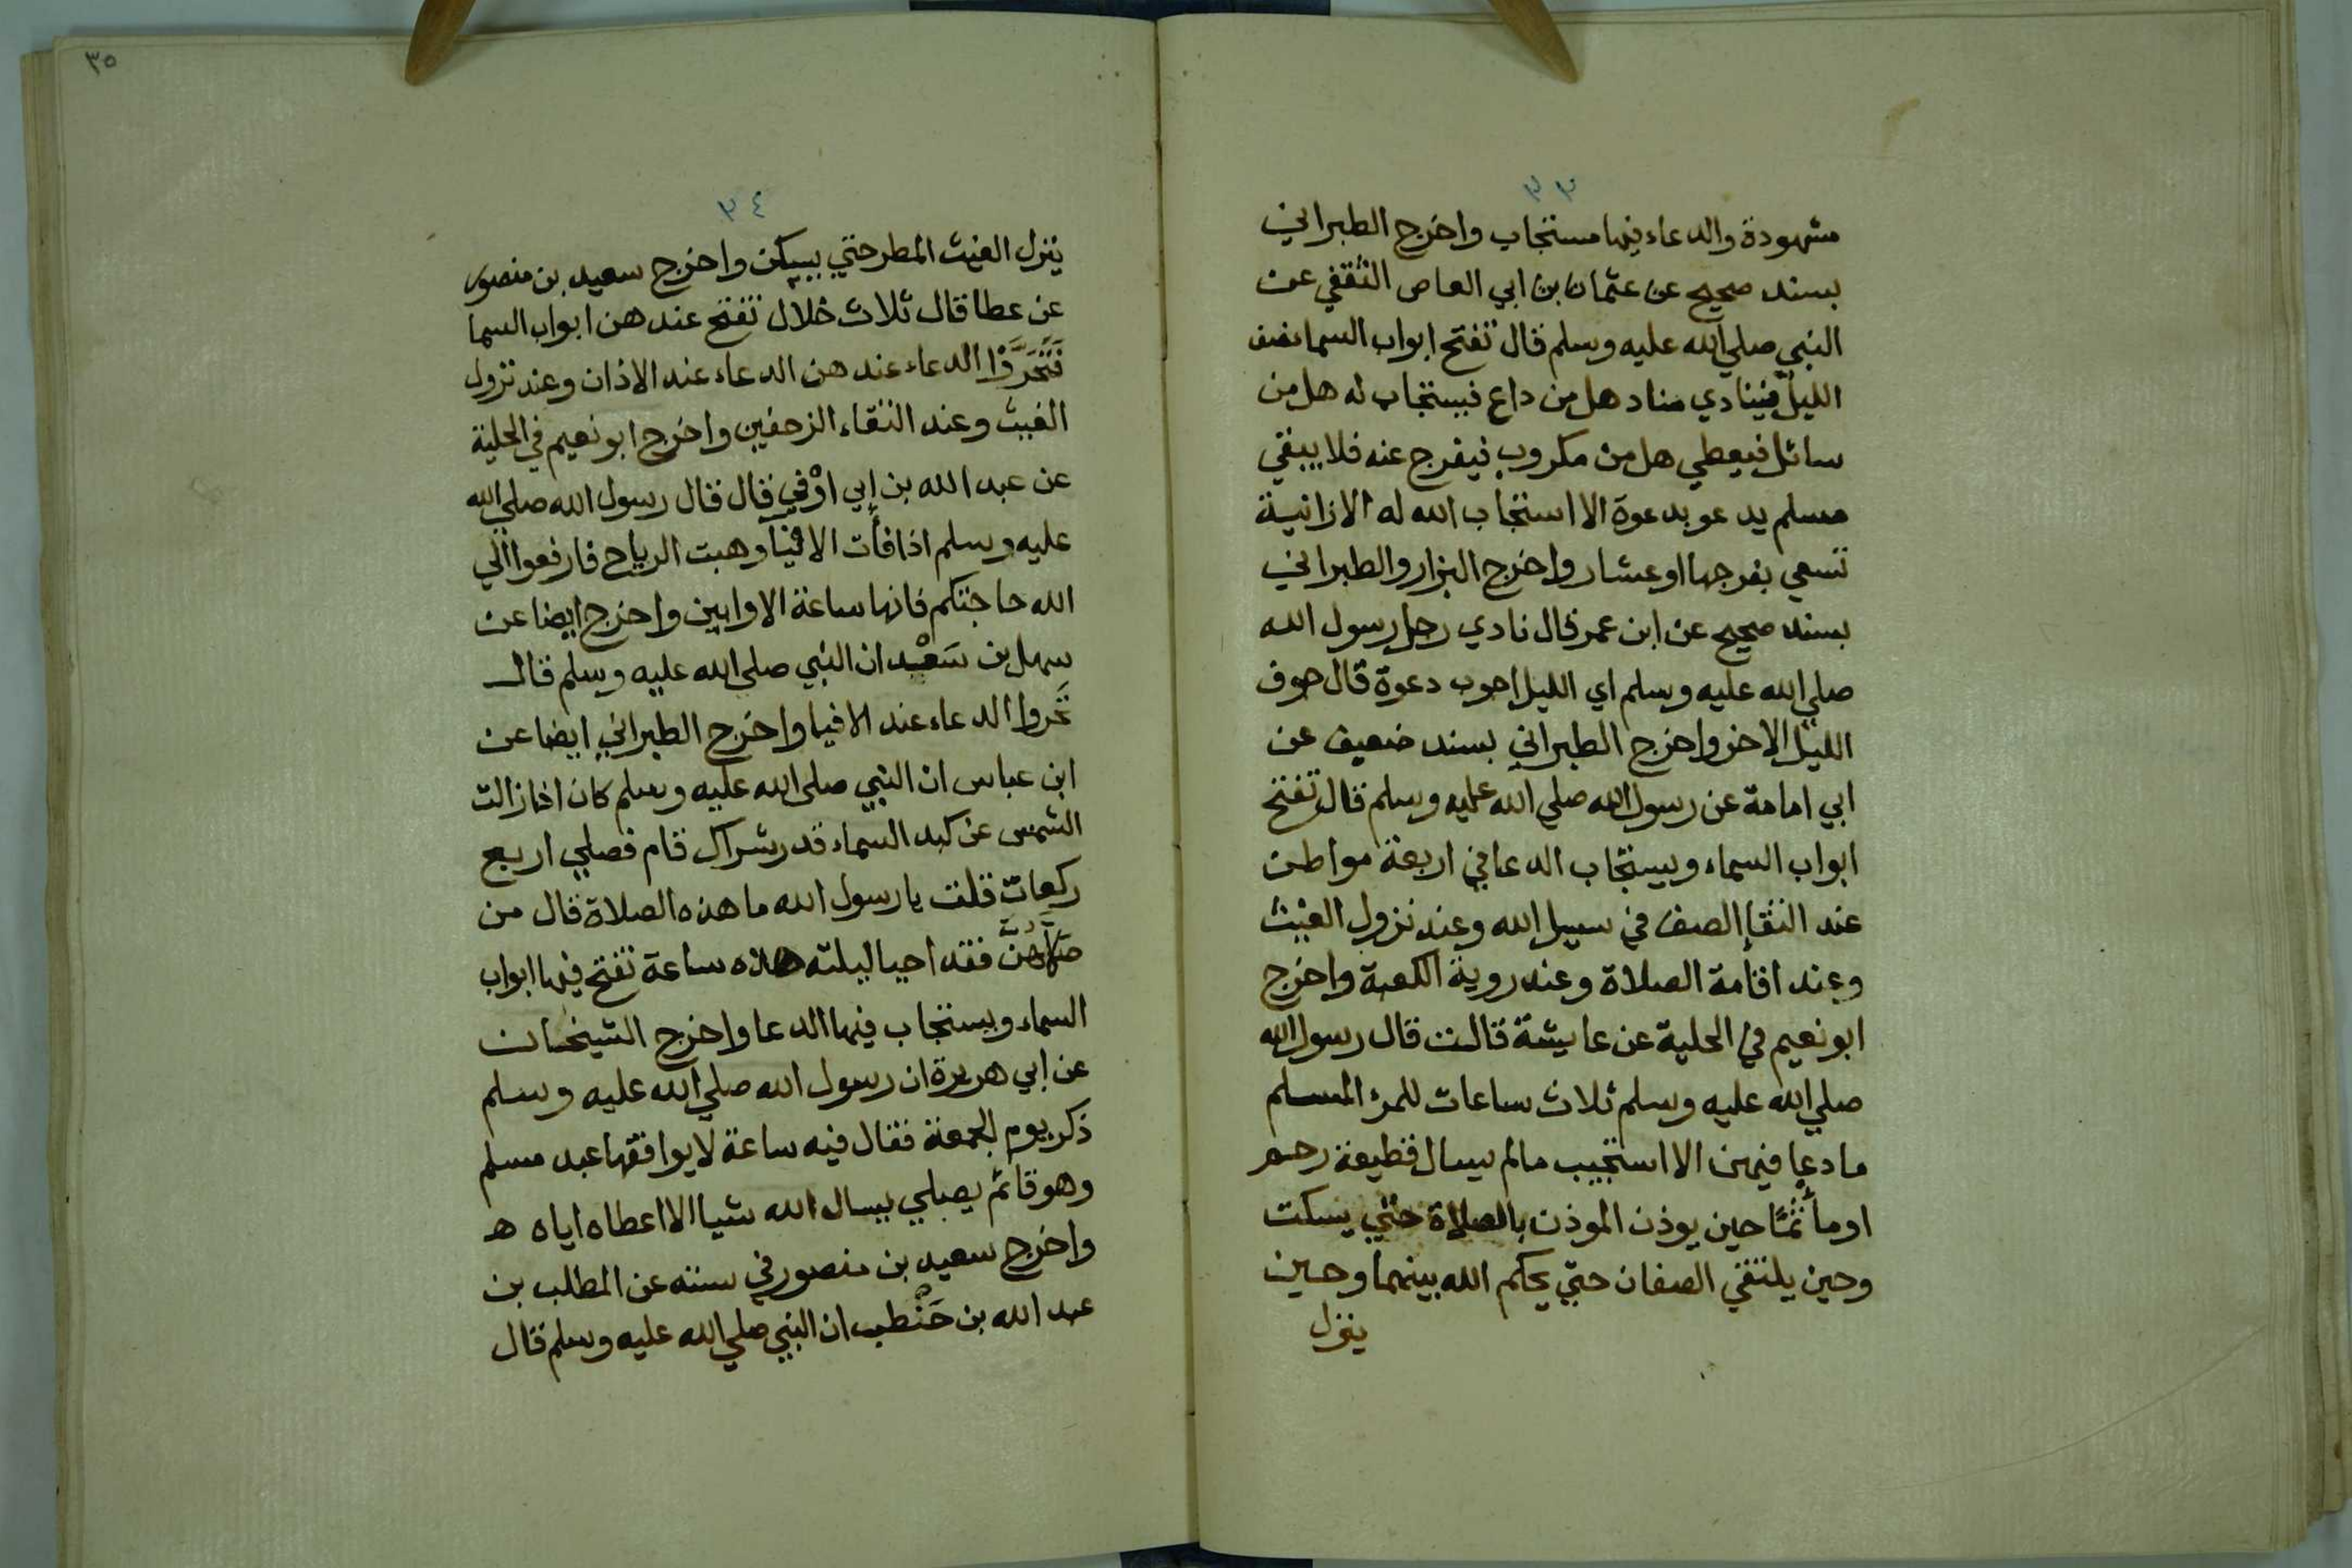 ٣٣
مشهودة والدعاء فيها مستجاب واخرج الطبراني
بسند صحيح عن عثمان بن ابي العاص الثقفي عن
النبي صلي الله عليه وسلم قال تفتح ابواب السما نصف
الليل فينادي مناد هل من داع فيستجاب له هل من
سائل فيعطي هل من مكروب فيفرج عنه فلا يبقي
مسلم يدعو بدعوة الا استجاب الله له الا زانية
تسعي بفرجها او عشار واخرج البزار والطبراني
بسند صحيح عن ابن عمر قال نادي رجل رسول الله
صلي الله عليه وسلم اي الليل اجوب دعوة قال جوف
الليل الاخر واخرج الطبراني بسند ضعيف عن
ابي امامة عن رسول الله صلي الله عليه وسلم قال تفتح
ابواب السماء ويستجاب الدعا في اربعة مواطن
عند التقا الصف في سبيل الله وعند نزول الغيث
وعند اقامة الصلاة وعند روية الكعبة واخرج
ابو نعيم في الحلية عن عايشة قالت قال رسول الله
صلي الله عليه وسلم ثلاث ساعات للمرء المسلم
ما دعا فيهن الا استجيب مالم يسال قطيعة رحم
او مأثمًا حين يوذن الموذن بالصلاة حتي يسكت
وحين يلتقي الصفان حتي يحكم الله بينهما وحين
ينزل
٣٥
٣٤
ينزل الغيث المطر حتي يسكن واخرج سعيد بن منصور
عن عطا قال ثلاث خلال تفتح عندهن ابواب السما
فَتَحَرَّوْا الدعاء عندهن الدعاء عند الاذان وعند نزول
الغيث وعند التقاء الزحفين واخرج ابو نعيم في الحلية
عن عبد الله بن ابي اوْفي قال قال رسول الله صلي الله
عليه وسلم اذا فأت الافيا وهبت الرياح فارفعوا الي
الله حاجتكم فانها ساعة الاوابين واخرج ايضا عن
سهل بن سَعْد ان النبي صلي الله عليه وسلم قال
تَحَروا الدعاء عند الافيا واخرج الطبراني ايضا عن
ابن عباس ان النبي صلي الله عليه وسلم كان اذا زالت
الشمس عن كبد السماء قدر شراك قام فصلي اربع
ركعات قلت يا رسول الله ما هذه الصلاة قال من
صَلَّاهُنَّ فقد احيا ليلته هذه ساعة تفتح فيها ابواب
السماء ويستجاب فيها الدعا واخرج الشيخان
عن ابي هريرة ان رسول الله صلي الله عليه وسلم
ذكر يوم الجمعة فقال فيه ساعة لا يوافقها عبد مسلم
وهو قائم يصلي يسال الله شيا الا اعطاه اياه ه
واخرج سعيد بن منصور في سننه عن المطلب بن
عبد الله بن حَنْطب ان النبي صلي الله عليه وسلم قال